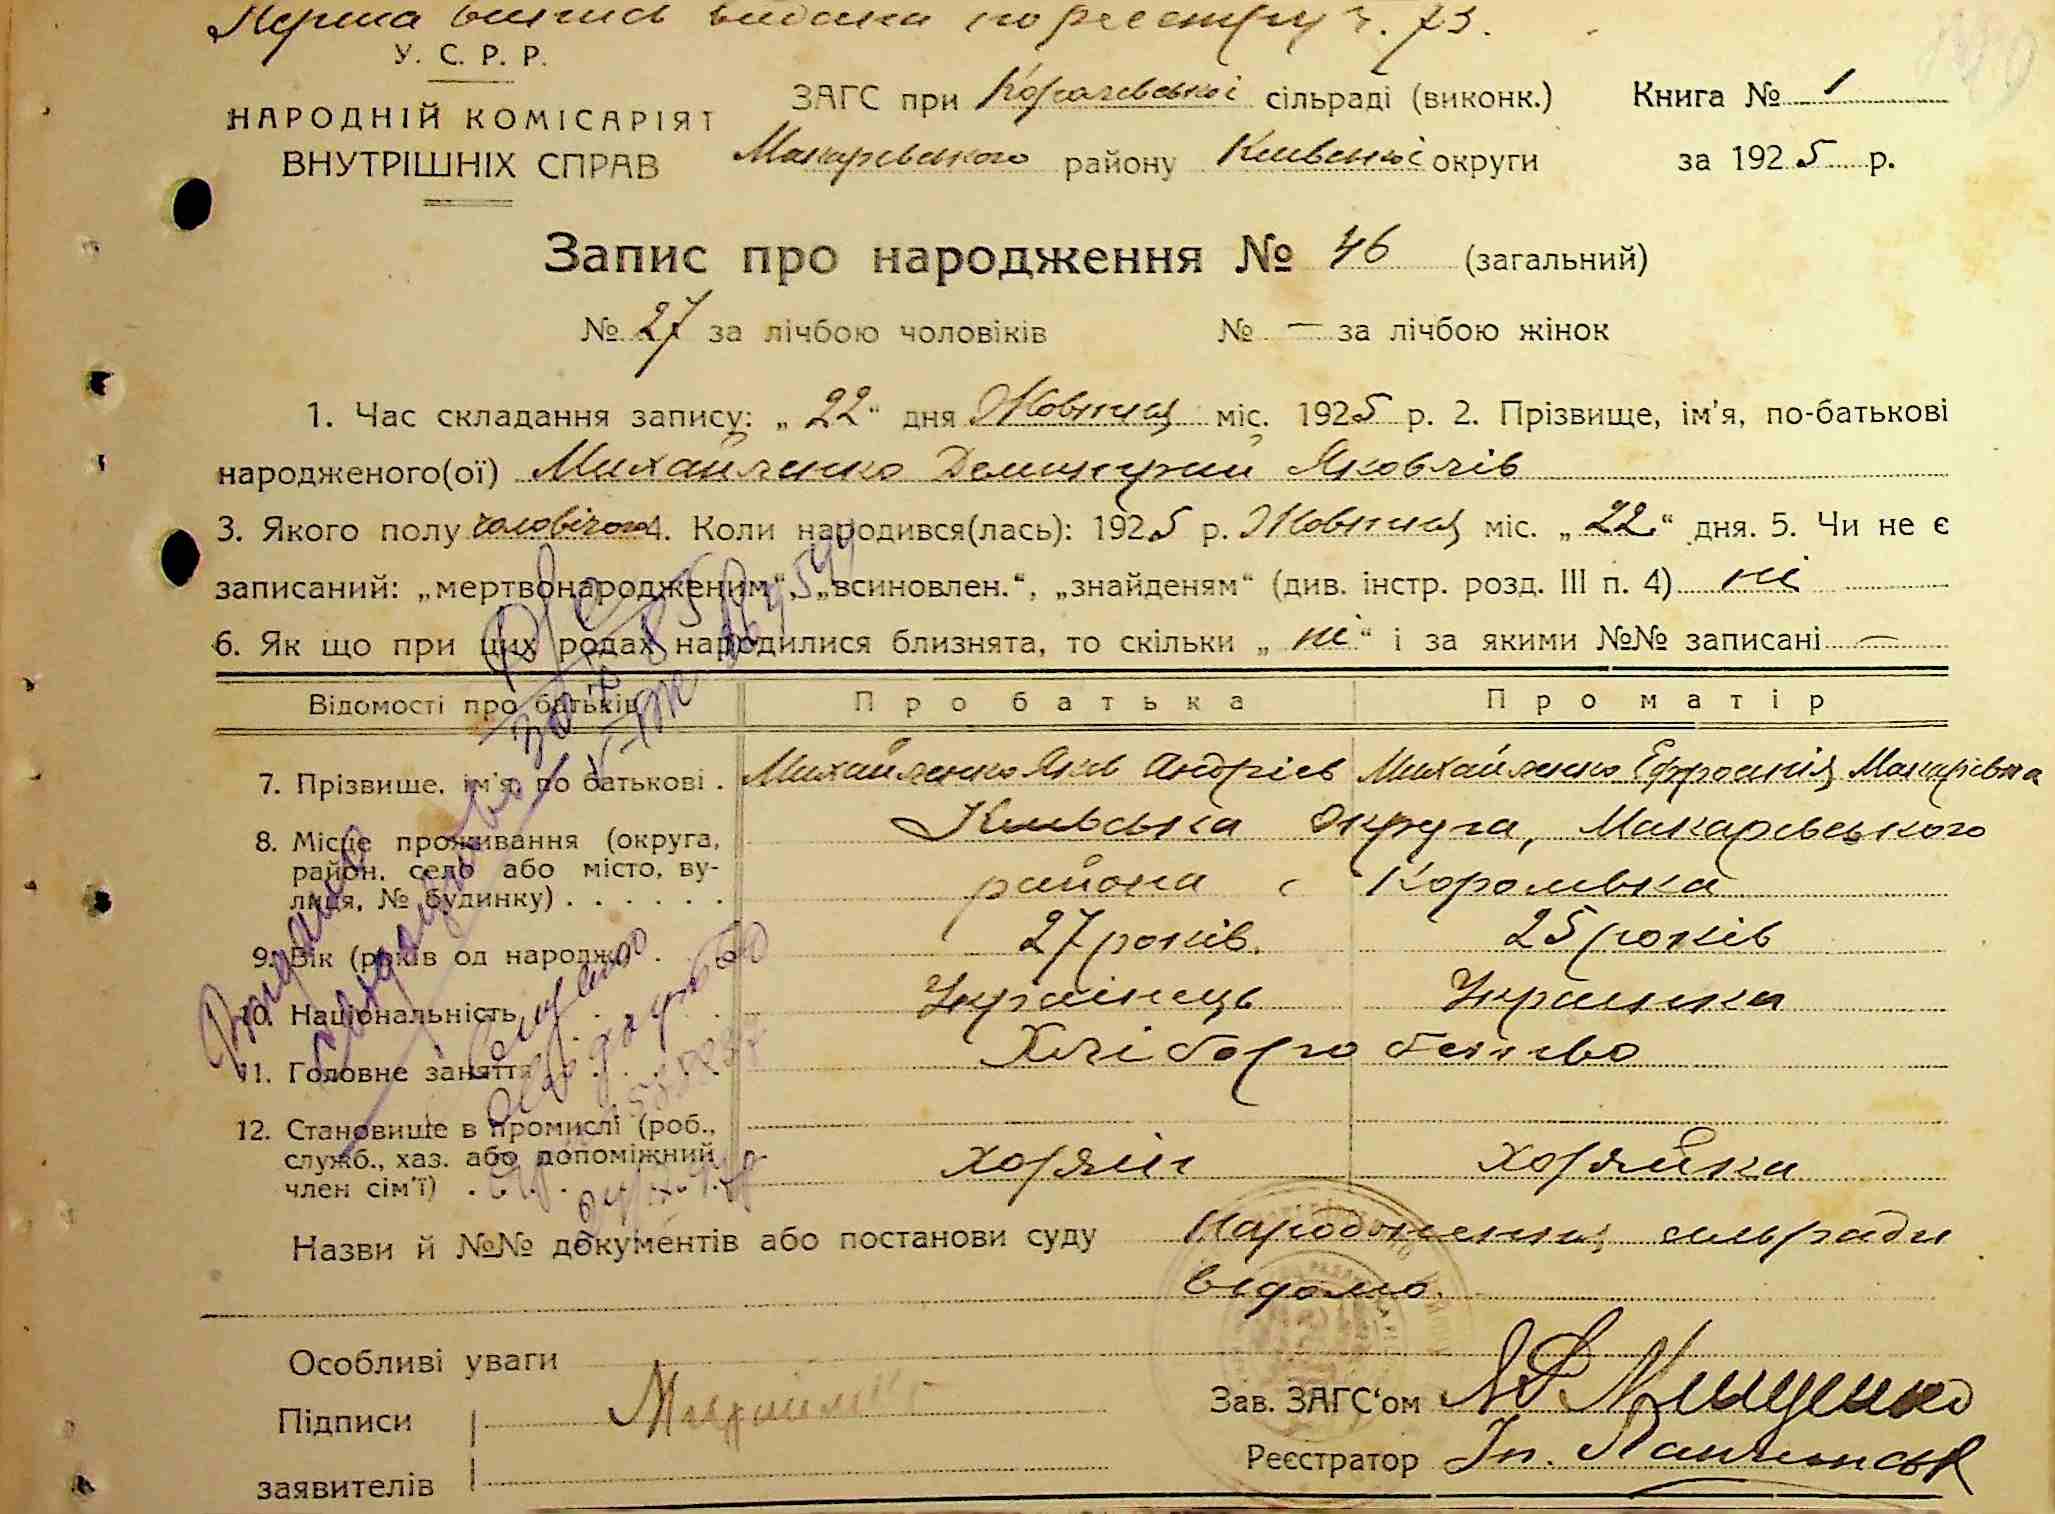 Перша випись видана по реєстру ч. 73.
У. С. Р. Р.
НАРОДНІЙ КОМІСАРІЯТ
ВНУТРІШНІХ СПРАВ
ЗАГС при сільраді (виконк.) Книга № 1
Макарівського району Київської округи за 1925 р.
Запис про народження № 46 (загальний)
№ 27 за лічбою чоловіків № — за лічбою жінок
1. Час складання запису: „22“ дня Жовтня міс. 1925 р. 2. Прізвище, ім'я, по-батькові
народженого(ої) Михайленко Демитрий Яковлів
3. Якого полу чоловічого 4. Коли народився(лась): 1925 р. Жовтня міс. „22“ дня. 5. Чи не є
записаний: „мертвонародженим“, „всиновлен.“, „знайденям“ (див. інстр. розд. III п. 4) ні
6. Як що при цих родах народилися близнята, то скільки „ні“ і за якими №№ записані —
Відомості про батьків Про батька Про матір
7. Прізвище, ім'я, по батькові . Михайленко Яків Андріїв Михайленко Ефросинія Макарівна
8. Місце проживання (округа, район, село або місто, вулиця, № будинку) . . . . . . Київська округа, Макарівського
района, Королівка
9. Вік (років од народж.) . . . 27 років. 25 років
10. Національність . . . . Українець Українка
11. Головне заняття . . . . Хліборобство
12. Становище в промислі (роб.,
служб., хаз. або допоміжний
член сім'ї) . . . хозяїн хозяйка
Назви й №№ документів або постанови суду Народження сельради
відомо.
Особливі уваги
Підписи
заявителів
Зав. ЗАГС'ом Мищенко
Реєстратор